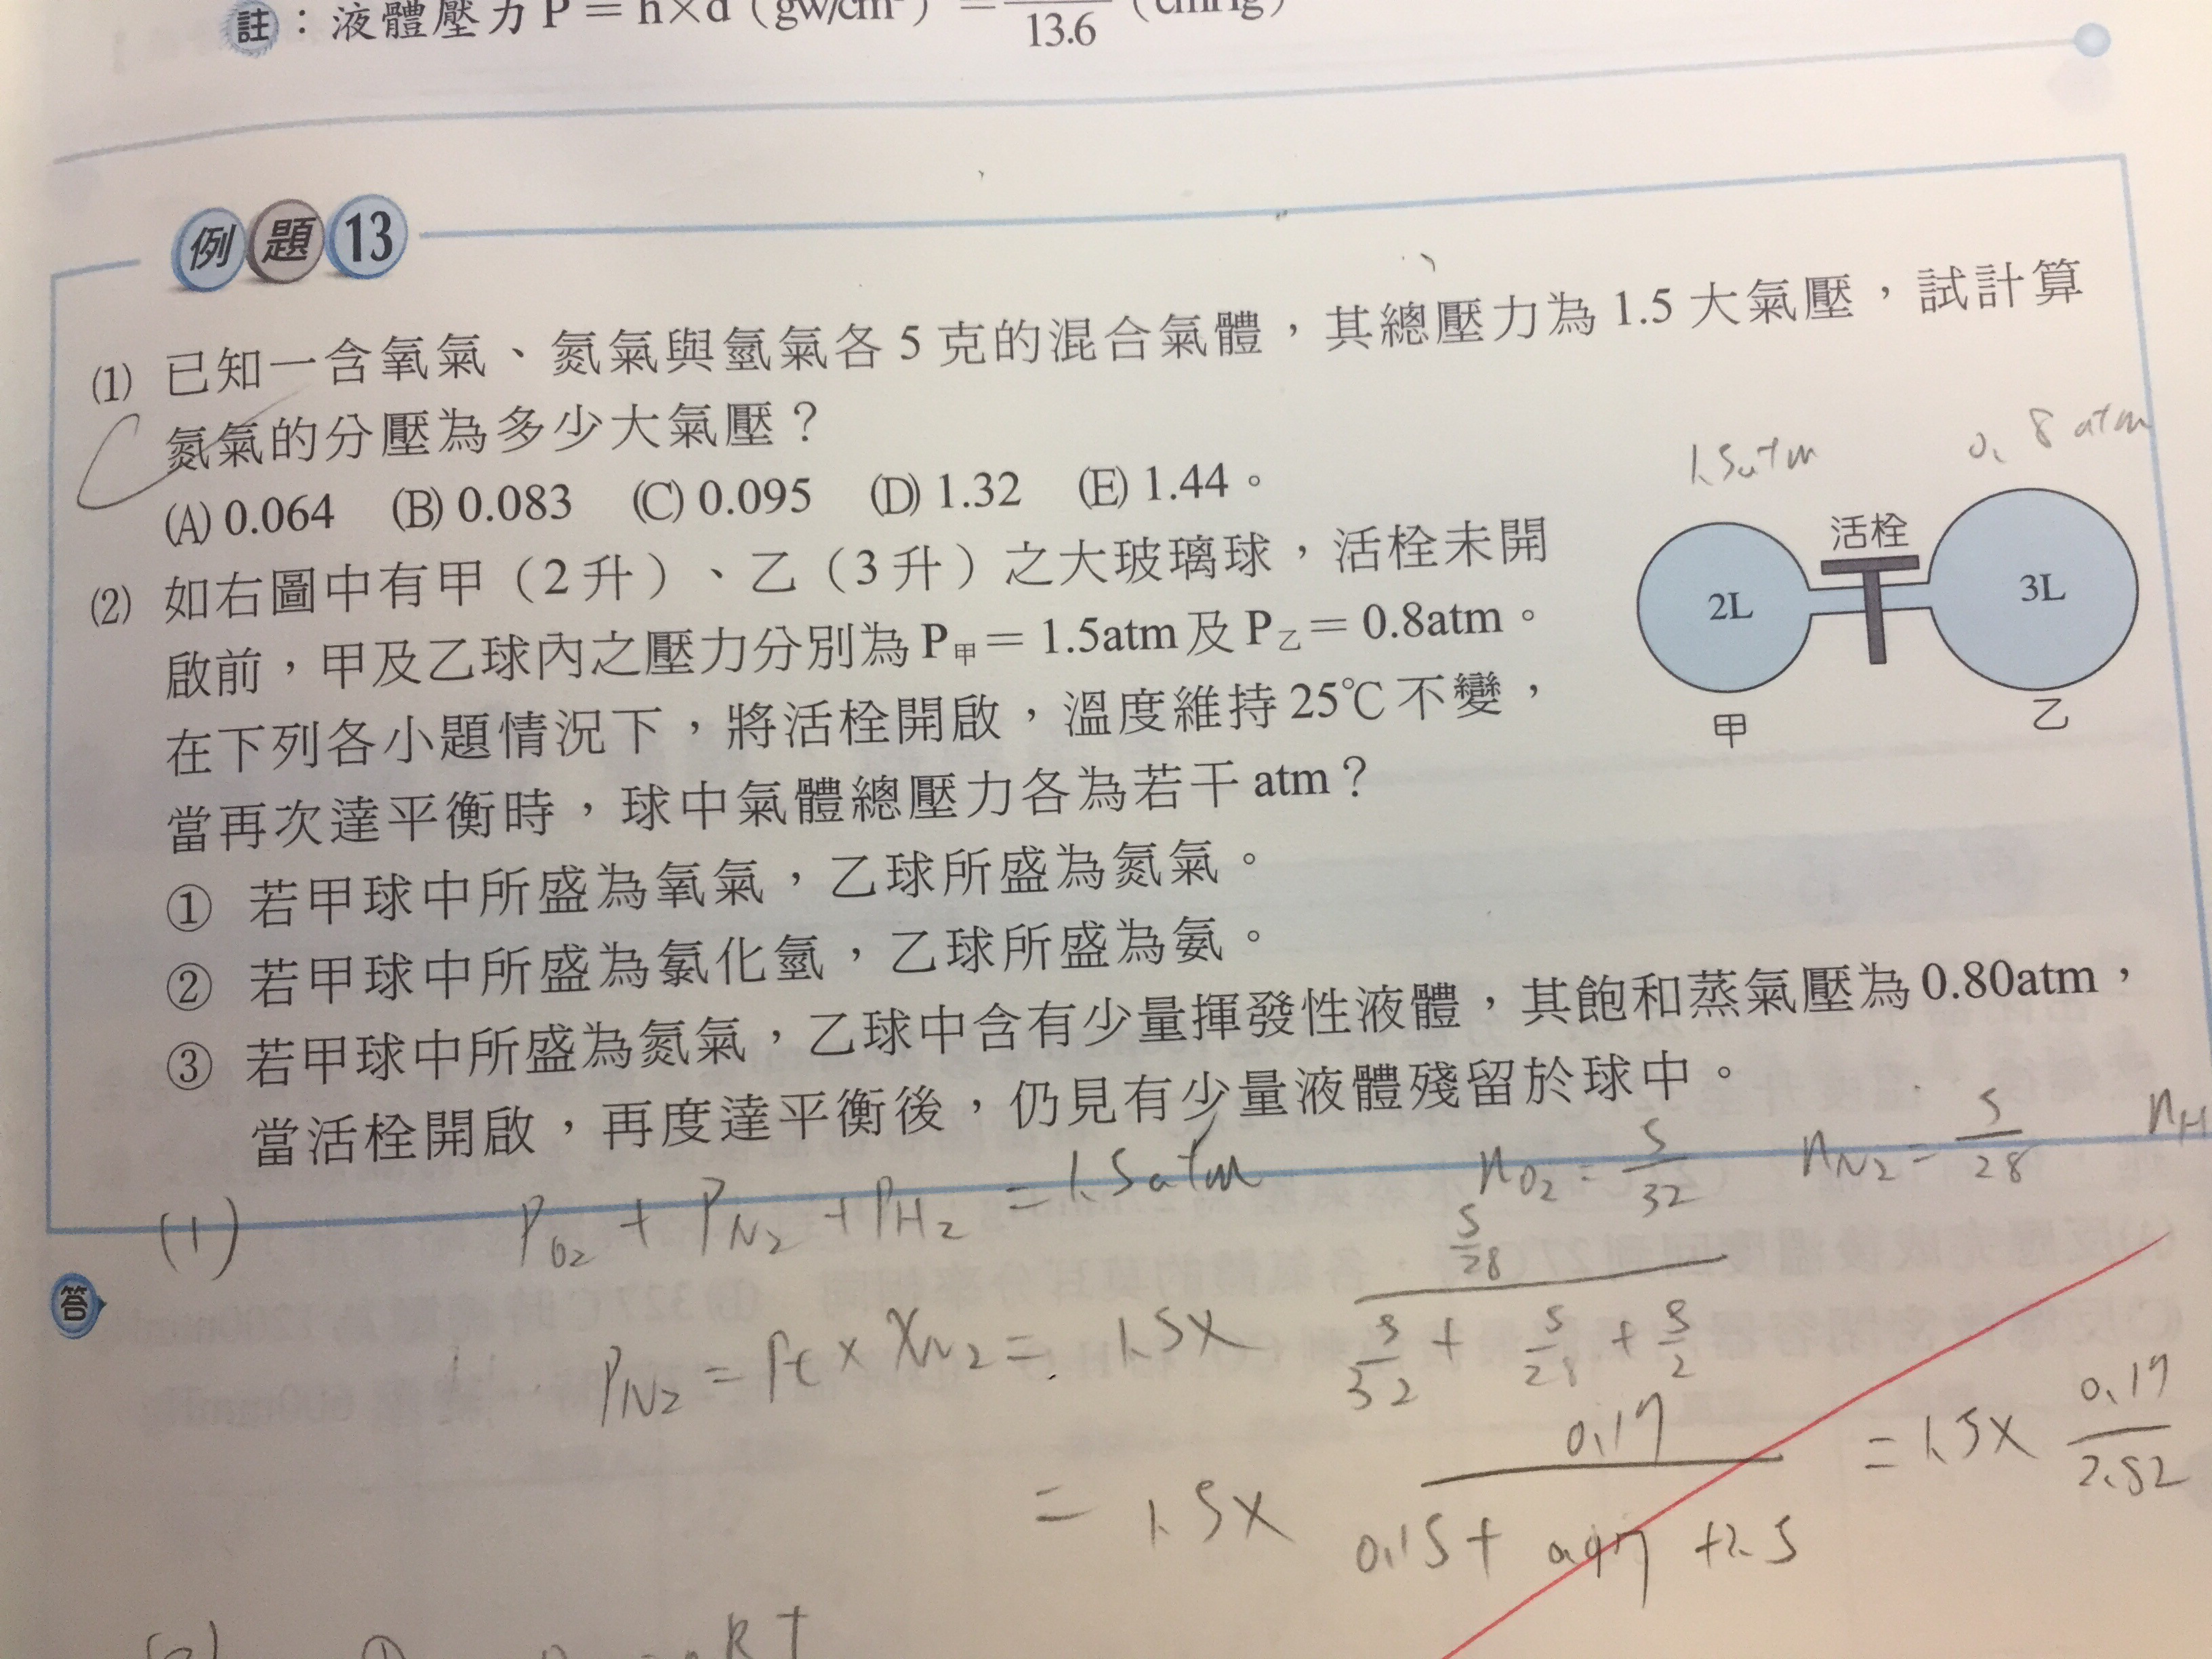 註：液體壓力 P = h×d（gw/cm²）= 13.6（cmHg）
例題 13
⑴ 已知一含氧氣、氮氣與氫氣各 5 克的混合氣體，其總壓力為 1.5 大氣壓，試計算
氮氣的分壓為多少大氣壓？
(A) 0.064 (B) 0.083 (C) 0.095 (D) 1.32 (E) 1.44。
⑵ 如右圖中有甲（2 升）、乙（3 升）之大玻璃球，活栓未開
啟前，甲及乙球內之壓力分別為 P甲 = 1.5atm 及 P乙 = 0.8atm。
在下列各小題情況下，將活栓開啟，溫度維持 25℃ 不變，
當再次達平衡時，球中氣體總壓力各為若干 atm？
① 若甲球中所盛為氧氣，乙球所盛為氮氣。
② 若甲球中所盛為氯化氫，乙球所盛為氨。
③ 若甲球中所盛為氮氣，乙球中含有少量揮發性液體，其飽和蒸氣壓為 0.80atm，
當活栓開啟，再度達平衡後，仍見有少量液體殘留於球中。
1.5atm
0.8atm
活栓
2L
3L
甲
乙
(1) PO2 + PN2 + PH2 = 1.5atm
nO2 = 5/32 nN2 = 5/28 nH
答
PN2 = Pt × XN2 = 1.5× (5/28)/(5/32 + 5/28 + 5/2)
= 1.5× 0.17/(0.15+0.17+2.5) = 1.5× 0.17/2.82